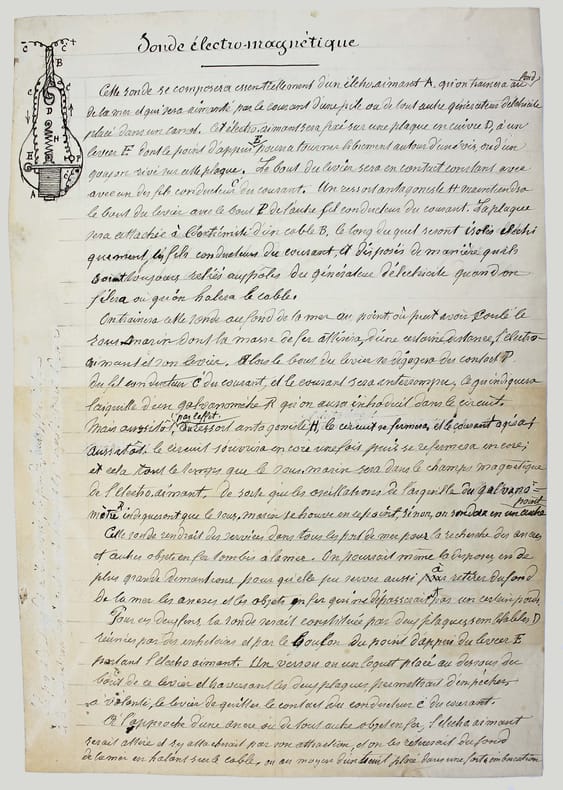 Sonde électro-magnétique
Cette sonde se composera essentiellement d'un électro-aimant A, qu'on trainera au fond
de la mer et qui sera aimanté par le courant d'une pile ou de tout autre générateur d'électricité
placé dans un canot. Cet électro-aimant sera fixé sur une plaque en cuivre D, à un
levier E dont le point d'appui E' pourra tourner librement autour d'une vis, ou d'un
goujon rivé sur cette plaque. Le bout du levier sera en contact constant avec
avec un des fils conducteur C du courant. Un ressort antagoniste H maintiendra
le bout du levier avec le bout P de l'autre fil conducteur du courant. La plaque
sera attachée à l'extrémité d'un cable B, le long du quel seront isolés électri
quement, les fils conducteurs du courant, et disposés de manière qu'ils
soient toujours reliés aux poles du générateur d'électricité quand on
filera ou qu'on halera le cable.
On trainera cette sonde au fond de la mer au point où peut avoir coulé le
sous-marin dont la masse de fer attirera, d'une certaine distance, l'électro-
aimant et son levier. Alors le bout du levier se dégagera du contact P
du fil conducteur C' du courant, et le courant sera interrompu, ce qu'indiquera
l'aiguille d'un galvanomètre R qu'on aura introduit dans le circuit.
Mais aussitôt, par l'effet du ressort antagoniste, H, le circuit se fermera et le courant agira;
aussitôt le circuit s'ouvrira encore une fois puis se refermera encore;
et cela tant le temps que le sous-marin sera dans le champs magnétique
de l'électro-aimant. De sorte que les oscillations de l'aiguille du galvano-
mètre R indiqueront que le sous-marin se trouve en ce point, sinon, on sondera en un autre point
Cette sonde rendrait des services dans tous les port de mer pour la recherche des ancres
et autres objets en fer tombés à la mer. On pourrait même la disposer, en de
plus grande dimentions, pour qu'elle pu servir aussi à retirer du fond
de la mer les ancres et les objets en fer qui ne dépasserait pas un certain poids.
Pour ces deux fins, la sonde serait constituée par deux plaques semblables D
réunies par des entretoises et par le boulon du point d'appui du levier E
portant l'électro aimant. Un verrou ou un loquet placé au dessous du
bout de ce levier et traversant les deux plaques permettrait d'empêcher
à volonté, le levier de quitter le contact du conducteur C du courant.
A l'approche d'une ancre ou de tout autre objet en fer, l'électro aimant
serait attiré et s'y attacherait par son attraction, et on les retirerait du fond
de la mer en halant sur le cable, ou au moyen d'un treuil placé dans une forte embarcation